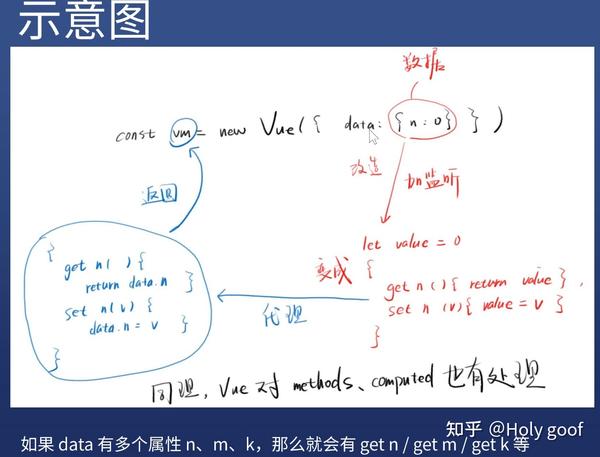 示意图
数据
const vm = new Vue({ data: {n:0} })
改造
加监听
返回
let value = 0
变成
{
get n(){ return value },
set n(v){ value = v
}
{
get n( ){
return data.n }
set n(v){
data.n = v }
}
代理
同理，Vue 对 methods、computed 也有处理
知乎 @Holy goof
如果 data 有多个属性 n、m、k，那么就会有 get n / get m / get k 等